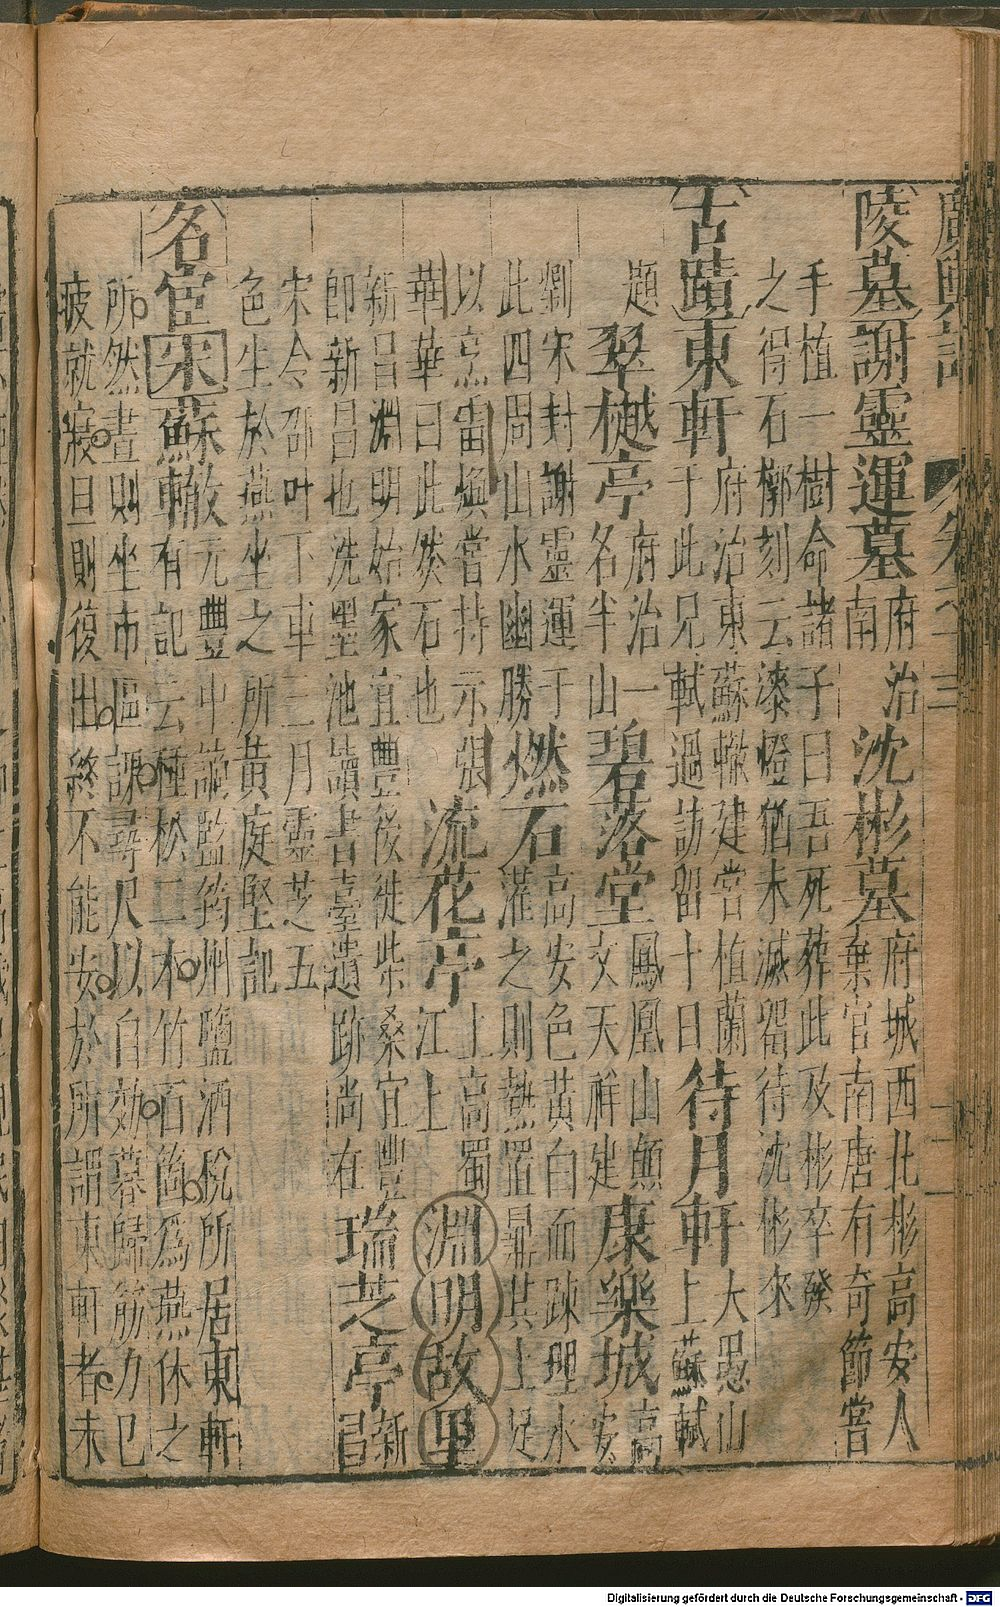 廣輿記 卷十二
陵墓 謝靈運墓 府治南 沈彬墓 府城西北彬高安人棄官南唐有奇節嘗
手植一樹命諸子曰吾死葬此及彬卒發
之得石槨刻云漆燈猶未滅留待沈彬來
古蹟 東軒 府治東蘇轍建嘗植蘭于此兄軾過訪留十日 待月軒 大愚山上蘇軾
題 翠樾亭 府治一名半山 碧落堂 鳳凰山顛文天祥建 康樂城 高安
劉宋封謝靈運于此四周山水幽勝 燃石 高安色黃白而踈理水灌之則熱置鼎其上足
以烹雷煥嘗持示張華華曰此燃石也 流花亭 上高蜀江上 淵明故里
新昌淵明始家宜豐後徙柴桑宜豐即新昌也洗墨池讀書臺遺跡尚在 瑞芝亭 新昌
宋令邵叶下車三月靈芝五色生於燕坐之所黃庭堅記
名宦 宋 蘇轍 元豐中謫監筠州鹽酒稅所居東軒故有記云種松二本竹百箇爲燕休之
所然晝則坐市區課尋尺以自効暮歸筋力已
疲就寢旦則復出終不能安於所謂東軒者未
Digitalisierung gefördert durch die Deutsche Forschungsgemeinschaft - DFG